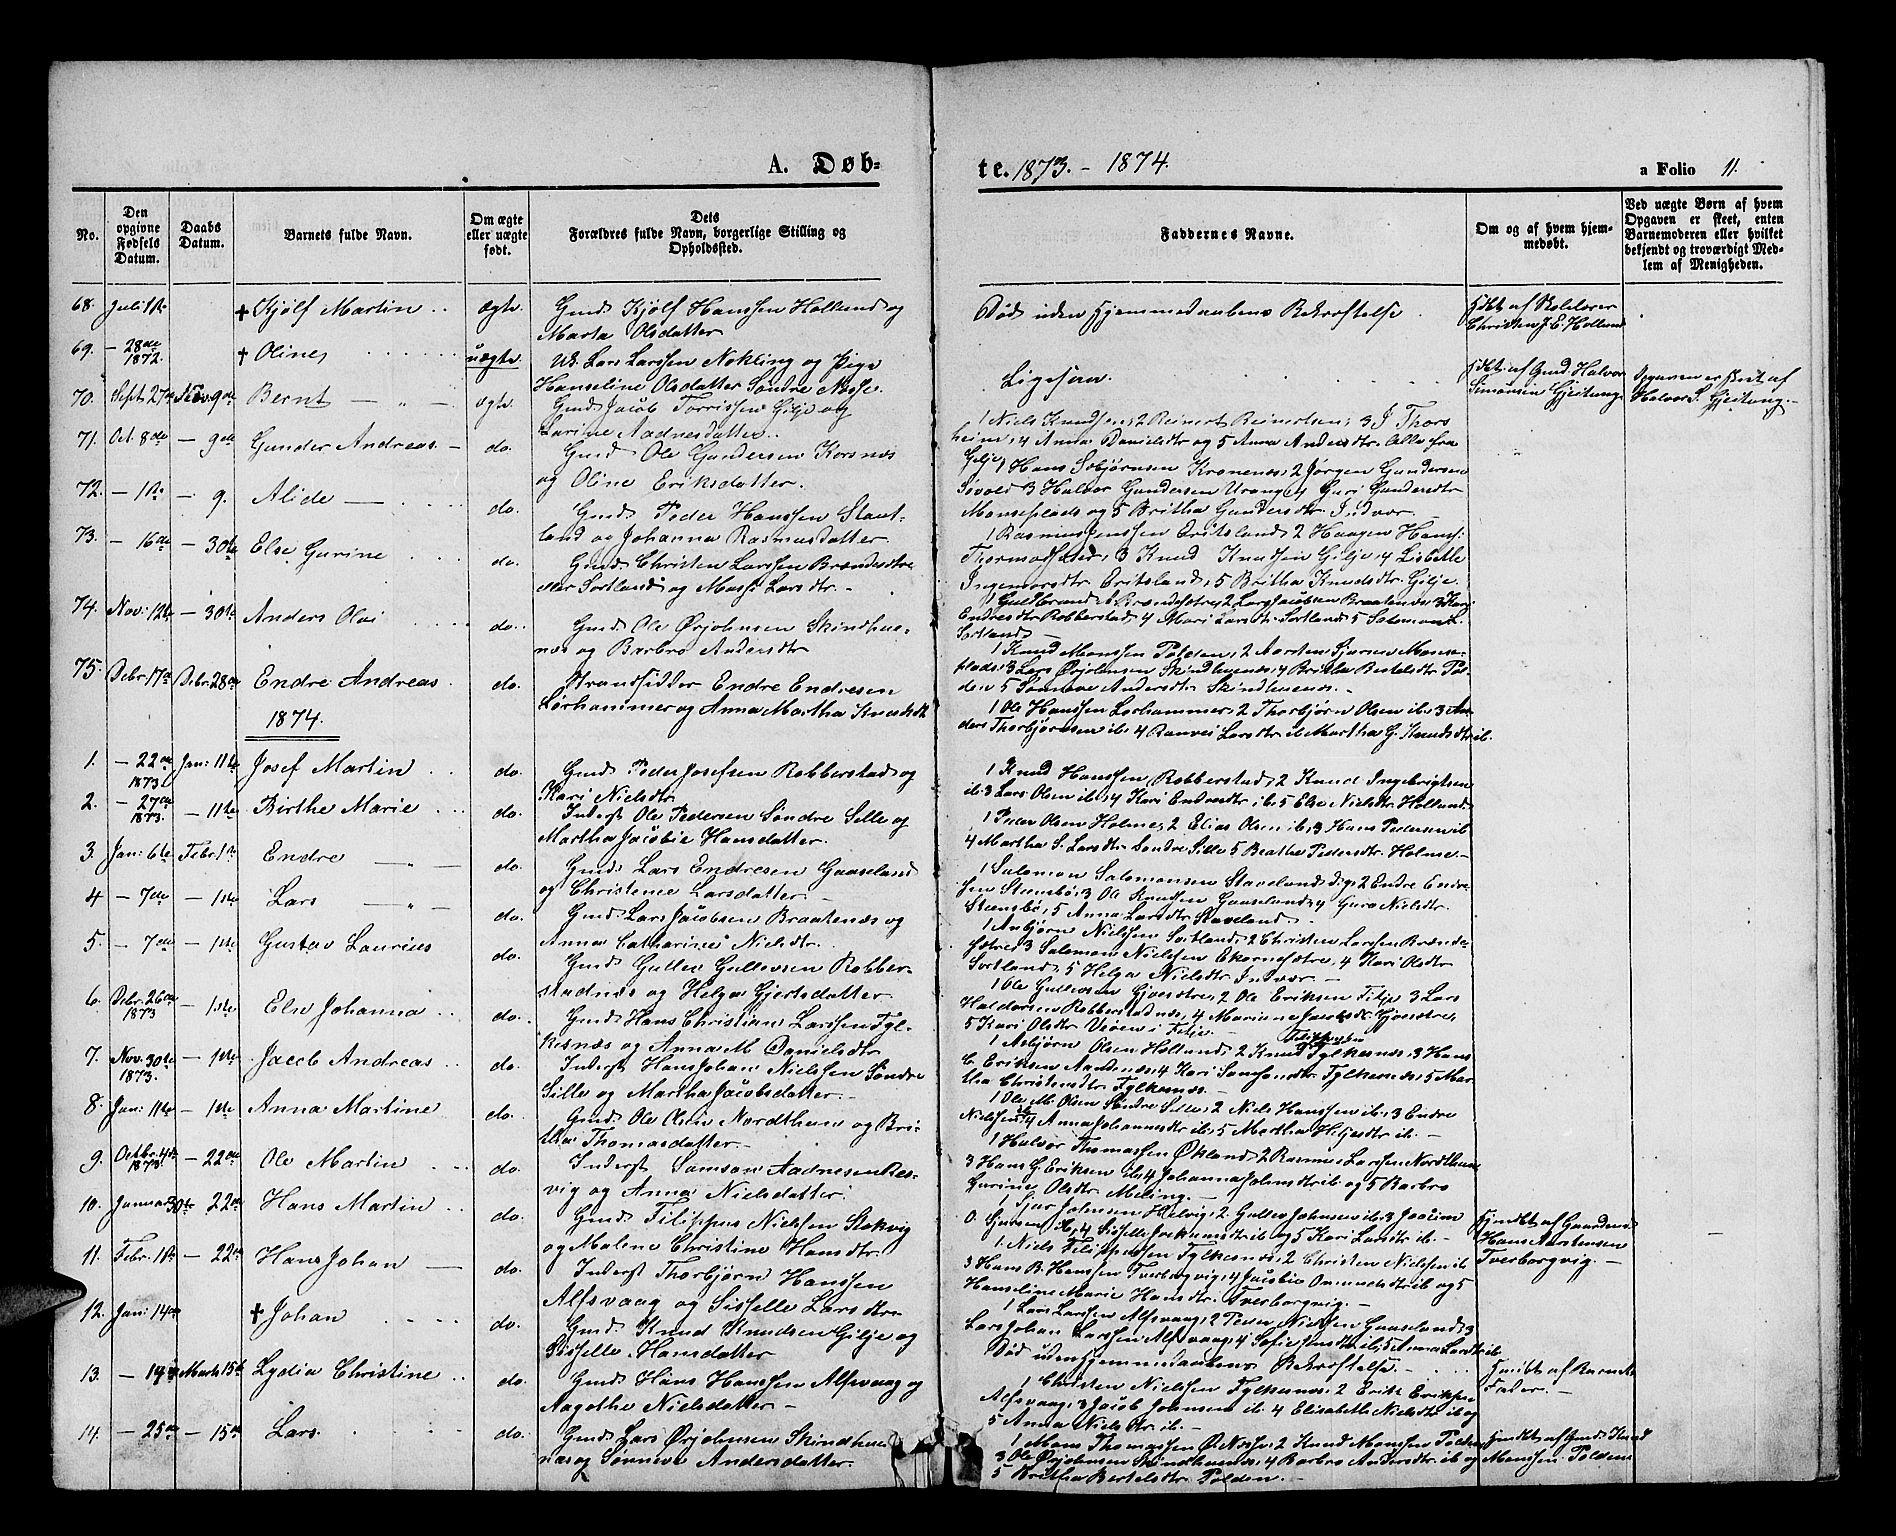 A. Døb-
te. 1873. - 1874.
a Folio 11.
No.
Den opgivne Fødsels Datum.
Daabs Datum.
Barnets fulde Navn.
Om ægte eller uægte født.
Dets Forældres fulde Navn, borgerlige Stilling og Opholdssted.
Faddernes Navne.
Om og af hvem hjemmedøbt.
Ved uægte Børn af hvem Opgaven er skeet, enten Barnemoderen eller hvilket bekjendt og troværdigt Medlem af Menigheden.
68. Juli 1ste † Kjølf Martin ægte Gmd. Kjølf Hanssen Holland og
Marta Olsdatter
Død uden Hjemmedaabens Bekræftelse.
Christen J. E. Holland
69. - 28de 1872. † Oline uægte Lars Larssen Nøkling og Pige
Hanseline Olsdatter Søndre Næsse.
Ligesaa.
Hdbt af Gmd. Halvor
Simonsen Gjeitung.
Opgaven er skeet af
Halvor S. Gjeitung.
70. Sept 27de Nov. 9de Bernt ægte. Gmd. Jacob Torrissen Gilje og
Larine Aadnesdatter.
1 Niels Knudsen, 2 Reinert Reinertsen, 3 J Thors
heim, 4 Anna Danielsdtr og 5 Anna Andersdtr. Alle fra
Gilje
71. Oct. 8de - 9de Gunder Andreas do. Gmd. Ole Gundersen Korsnes
og Oline Eriksdatter.
1 Hans Asbjørnsen Kronenes, 2 Jørgen Gundersen
3 Halvor Gundersen Urang, 4 Guri Gundersdtr
Monseplads og 5 Britha Gundersdtr. Indvær.
72. - 1ste - 9. Alide do. Gmd. Peder Hanssen Staut-
land og Johanna Rasmusdatter
1 Rasmus Jenssen Eritsland, 2 Haagen Hans:
3 Knud Knudsen Gilje, 4 Lisbette
Ingemorsdtr. Eritsland, 5 Britha Knudsdtr. Gilje.
73. - 16de - 30te Else Gurine do. Gmd. Christen Larssen Brændesætre
eller Sortland og Massi Larsdtr.
1 Gudbrand Brændesætre, 2 Lars Jacobsen Braatenæs, 3 Kari
Endresdtr Robberstad, 4 Mari Larsdtr. Sortland, 5 Salomon
Sortland
74. Nov: 12te - 30te Anders Olai do. Gmd. Ole Ørjohnsen Skindhue-
næs og Barbro Andersdtr
1 Knud Monssen Polden, 2 Morten Sjursen Monse-
plads, 3 Lars Ørjohnsen Skindhuenæs, 4 Britha Bertelsdtr. Pol-
den, 5 Sønneve Andersdtr. Skindhuenæs.
75. Debr. 17de Debr. 28de Endre Andreas do. Strandsidder Endre Endresen
Lorhammer og Anna Martha Knudsdtr
1 Ole Hanssen Lorhammer, 2 Thorbjørn Olsen ib, 3 An-
ders Thorbjørnsen ib, 4 Ranvei Larsdtr ib Martha G. Knudsdtr ib.
1874.
1. - 22de 1873 Jan: 11te Josef Martin do. Gmd. Peder Josefsen Robberstad og
Kari Nielsdtr
1 Knud Hanssen Robberstad, 2 Knud Ingebrigtsen
ib. 3 Lars Olsen ib, 4 Kari Endresdtr ib. 5 Else Nielsdtr. Holland.
2. - 27de 1873. - 11te Birthe Marie do. Inderst Ole Pedersen Søndre Sille og
Martha Jacobie Hansdatter.
1 Peder Olsen Holme, 2 Elias Olsen ib, 3 Hans Pedersen ib
4 Martha S. Larsdtr Søndre Sille 5 Brathe Pedersdtr. Holme.
3. Jan: 6te Febr. 1ste Endre do. Gmd. Lars Endresen Gaaseland
og Christence Larsdatter.
1 Salomon Salomonsen Staveland, 2 Endre Endre-
sen Stensbø, 3 Ole Knudsen Gaaseland, 4 Guro Nielsdtr.
Stensbø, 5 Anna Larsdtr Staveland.
4 - 7de - 1ste Lars do. Gmd. Lars Jacobsen Braatenæs og
Anna Catharine Nielsdtr.
1 Anbjørn Nielssen Sortland, 2 Christen Larssen Brænde-
sætre, 3 Salomon Nielssen Ekornesætre, 4 Kari Olsdtr
Sortland, 5 Helga Nielsdtr Indvær.
5. - 7de - 1ste Gustav Laurius do. Gmd. Gullev Gullevsen Robber-
stadnæs og Helga Gjertsdatter.
1 Ole Gullevsen Gjøsætre, 2 Ole Eriksen Fitje 3 Lars
Haldorsen Robberstadnæs, 4 Mariane Jacobsdtr. Gjøsætre,
5 Kari Olsdtr Viøen i Fitje.
6. Debr. 26de 1873 - 1ste Else Johanna do. Gmd. Hans Christian Larssen Fyl-
kesnæs og Anna M. Danielsdtr
1 Asbjørn Olsen Holland, 2 Knud Filippusen Fylkesnæs, 3 Hans
C. Eriksen Aadnenæs, 4 Kari Samsonsdtr. Fylkesnæs, 5 Mar-
tha Christensdtr. Fylkesnæs.
7. Nov. 30te 1873. - 1ste Jacob Andreas do. Inderst Hans Johan Nielssen Søndre
Sille og Martha Jacobsdatter.
1 Ole M. Olsen Søndre Sille, 2 Niels Hanssen ib, 3 Endre
Nielsen ib, 4 Anna Johannesdtr ib, 5 Martha Hiljesdtr ib.
8. Jan: 11te - 1ste Anna Martine do. Gmd. Ole Olsen Nordthun og Bri-
tha Thomasdatter.
1 Halvor Thomassen Økland, 2 Rasmus Larssen Nordthun,
3 Hans G. Eriksen ib, 4 Johanna Johnsdtr ib og 5 Barbro
Gurine Olsdtr. Meling.
9. Octbr. 4de 1873. - 22de Ole Martin do. Inderst Samson Aadnesen Ras-
vig og Anna Nielsdatter.
1 Sjur Johnsen Helvig, 2. Gullev Johnsen ib, 3 Joacim
O. Sjursen ib, 4 Sisselle og 5 Kari Larsdtr ib.
10. Januar 30te 22de Hans Martin do. Gmd. Filippus Nielssen Stokvig
og Malene Christine Hansdtr.
1 Niels Filippussen Fylkesnæs, 2 Christen Nielssen ib
3 Hans B. Hanssen Tverborgvig, 4 Jacobie Ommundsdtr ib og 5
Hanseline Marie Hansdtr. Tverborgvig.
Hjmdbt af Gaardmd.
Hans Aarstensen
Tverborgvig.
11. Febr. 1ste - 22de Hans Johan do. Inderst Thorbjørn Hanssen
Alfsvaag og Sisselle Larsdtr.
1 Lars Larssen Alfsvaag, 2 Peder Nielsen Gaaseland, 3
Lars Johan Larssen Alfsvaag, 4 Sofie ib, 5 Anna Larsdtr ib
12. Jan: 14de † Johan do. Gmd. Knud Knudsen Gilje og
Sisselle Hansdatter
Død uden Hjemmedaabens Bekræftelse.
Hmdbt af Barnets
Fader.
13. - 14de Marts 15de Lydia Christine do. Gmd. Hans Hanssen Alfsvaag og
Aagothe Nielsdatter.
1 Christen Nielssen Fylkesnæs, 2 Erik Eriksen
Alfsvaag, 3 Jacob Johnsen ib, 4 Elisabeth Nielsdtr ib og
5 Anna Nielsdtr ib.
14. - 25de - 15de Lars do. Gmd. Lars Ørjohnsen Skindhue
næs og Sønneve Andersdatter.
1 Mons Thomassen Ø. Næsse, 2 Knud Monssen Polden,
3 Ole Ørjohnsen Skindhuenæs, 4 Barbro Andersdtr ib og
5 Britha Bertelsdtr. Polden.
Hjmdbt af Gmd. Knud
Monssen Polden.